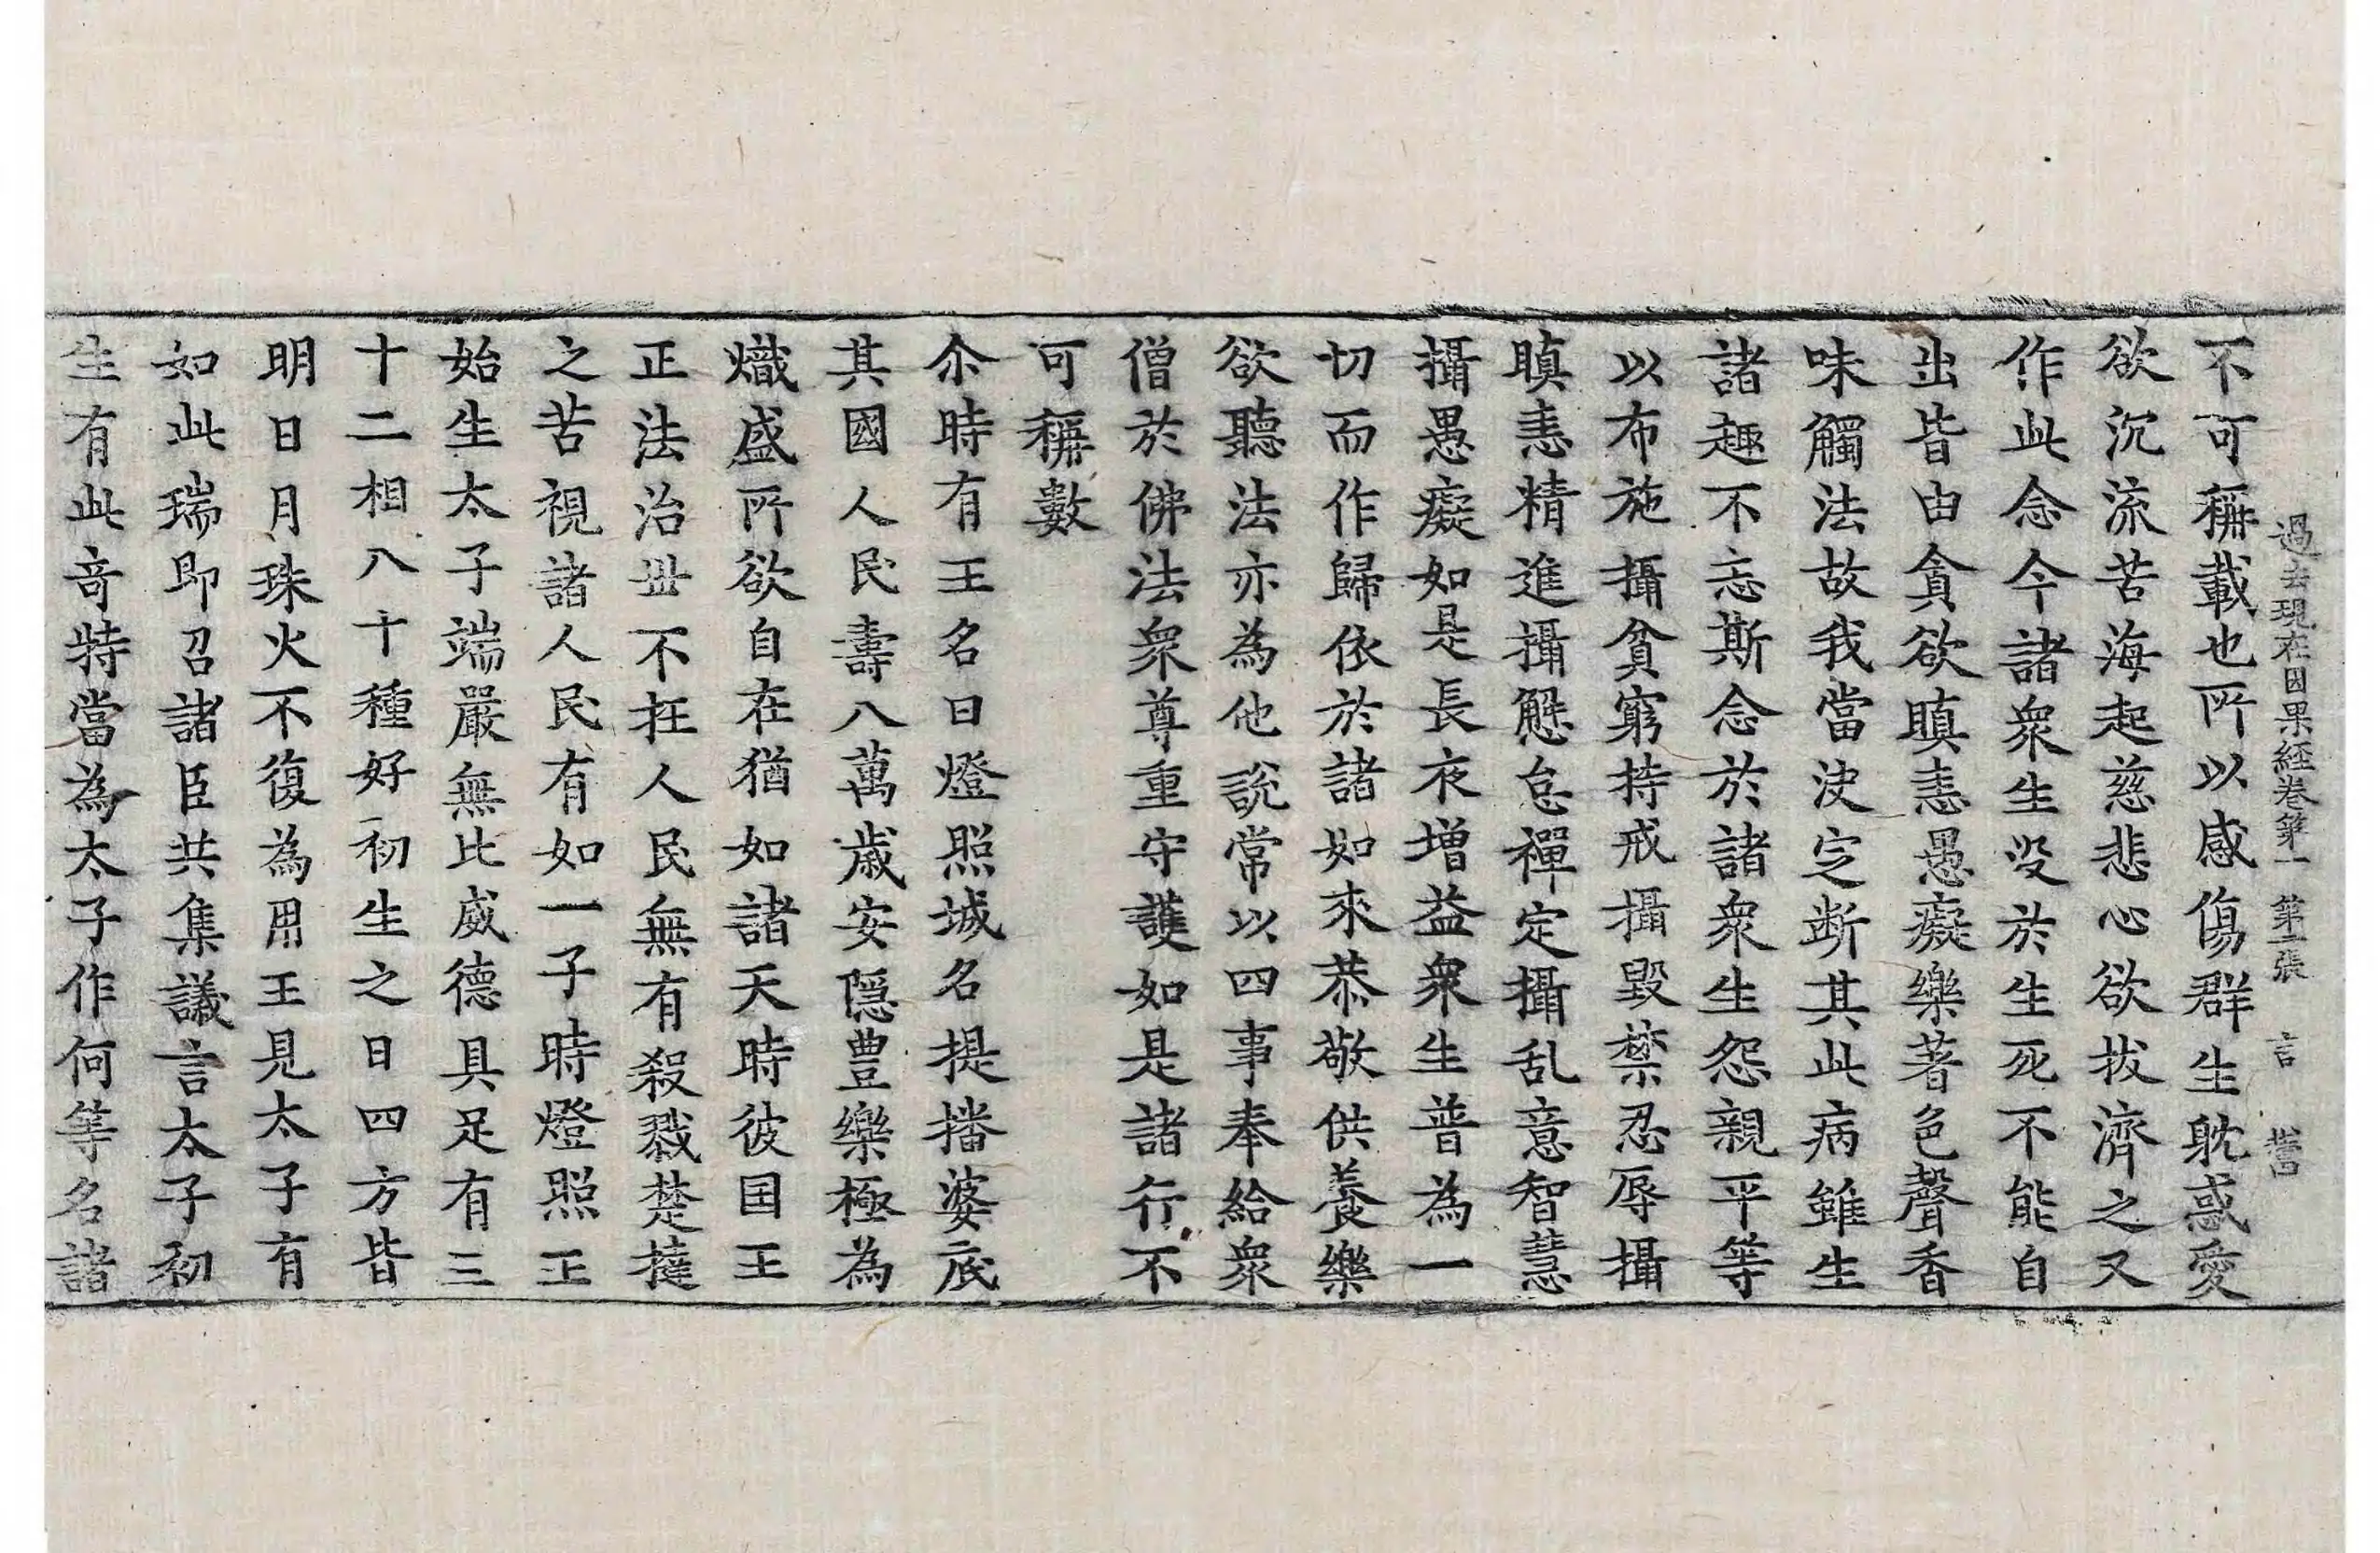 過去現在因果經卷第一　第二張　言　
不可稱載也所以感傷群生躭惑愛
欲沉流苦海起慈悲心欲拔濟之又
作此念今諸衆生没於生死不能自
出皆由貪欲瞋恚愚癡樂著色聲香
味觸法故我當決定断其此病雖生
諸趣不忘斯念於諸衆生怨親平等
以布施攝貧窮持戒攝毀禁忍辱攝
瞋恚精進攝懈怠禪定攝乱意智慧
攝愚癡如是長夜增益衆生普為一
切而作歸依於諸如來恭敬供養樂
欲聽法亦為他說常以四事奉給衆
僧於佛法衆尊重守護如是諸行不
可稱數
尒時有王名曰燈照城名提播婆底
其國人民壽八萬歲安隱豊樂極為
熾盛所欲自在猶如諸天時彼国王
正法治丗不枉人民無有殺戮楚撻
之苦視諸人民有如一子時燈照王
始生太子端嚴無比威德具足有三
十二相八十種好初生之日四方皆
明日月珠火不復為用王見太子有
如此瑞即召諸臣共集議言太子初
生有此奇特當為太子作何等名諸